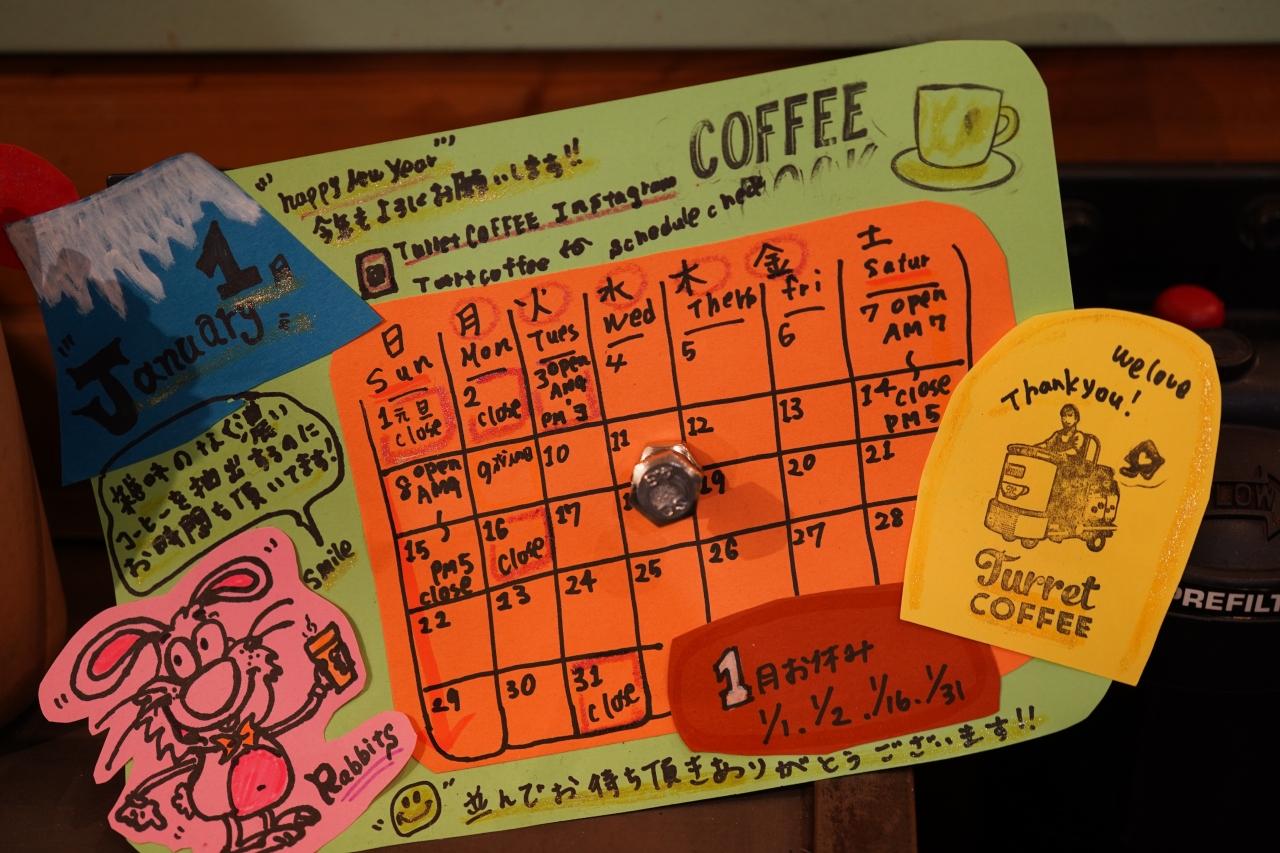 "happy New Year"
今年もよろしくお願いします!!
COFFEE
Turret COFFEE Instagram
Turret coffee to schedule check
1月
January
日 月 火 水 木 金 土
Sun Mon Tues Wed Thers fri Satur
1元旦 close
2 close
3 open AM9 PM3
4
5
6
7 open AM7
close PM5
8 open AM9
PM5 close
9
10
11
12
13
14
15
16 close
17
19
20
21
22
23
24
25
26
27
28
29
30
31 close
1月お休み
1/1. 1/2. 1/16. 1/31
雑味のなく濃い
コーヒーを抽出するのに
お時間も頂いてます!
smile
Rabbits
we love
Thank you!
Turret
COFFEE
"並んでお待ち頂きありがとうございます!!
PREFILT